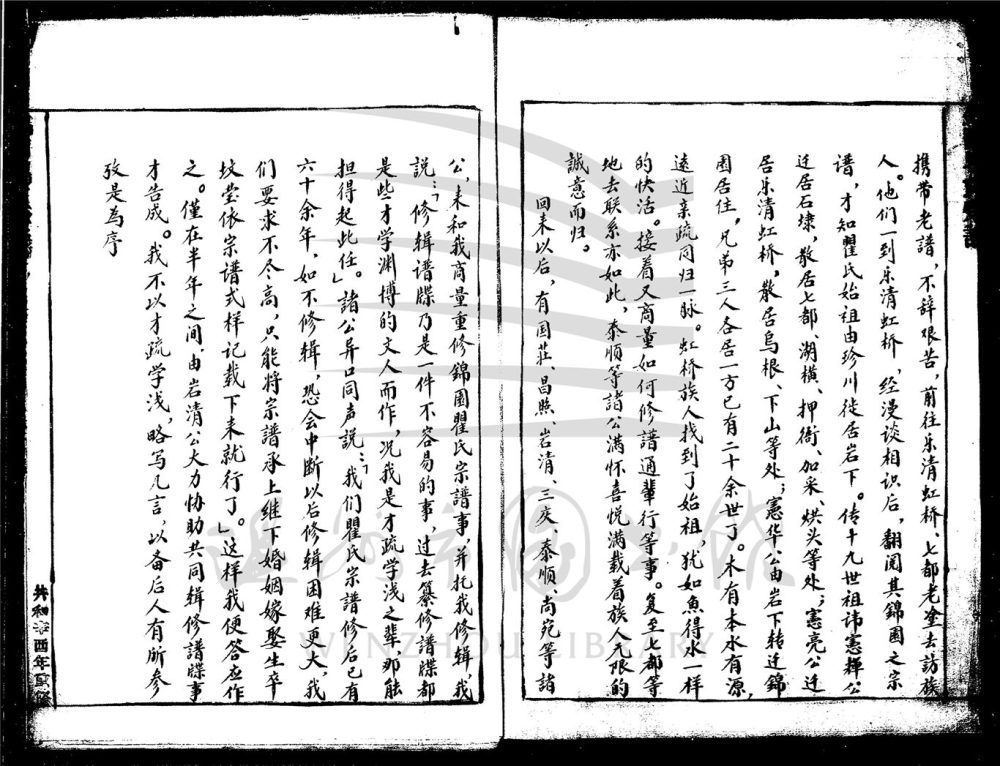 携带老譜，不辞艰苦，前往乐清虹桥、七都老塗去訪族
人。他们一到乐清虹桥，经漫谈相识后，翻阅其錦園之宗
谱，才知瞿氏始祖由珍川徙居岩下。传十九世祖讳憲揮公
迁居石埭，散居七都、湖横、押衙、加采、烘头等处；憲亮公迁
居乐清虹桥，散居烏根、下山等处；憲华公由岩下转迁錦
園居住，兄弟三人各居一方已有二十余世了。木有本水有源，
遠近亲疏同归一脉。虹桥族人找到了始祖，犹如魚得水一样
的快活。接着又商量如何修譜通輩行等事。复至七都等
地去联系亦如此，泰順等諸公满怀喜悦满载着族人无限的
誠意而归。
回来以后，有国荘、昌熙、岩清、三庆、泰順、尚宛等諸
公，来和我商量重修錦園瞿氏宗譜事，并扥我修辑，我
説：「修辑谱牒乃是一件不容易的事，过去纂修谱牒都
是些才学渊博的文人而作，况我是才疏学浅之輩，那能
担得起此任。」諸公异口同声説：「我们瞿氏宗譜修后已有
六十余年，如不修辑，恐会中断以后修辑困难更大，我
们要求不尽高，只能将宗譜承上继下婚姻嫁娶生卒
坟茔依宗谱式样记载下来就行了。」这样我便答应作
之。僅在半年之间由岩清公大力协助共同辑修譜牒事
才告成。我不以才疏学浅，略写几言，以备后人有所参
攷是為序
共和辛酉年重修
WENZHOU LIBRARY